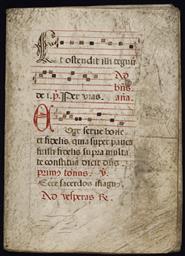 Et ostendit illi regnū
Ad
de i. p. Per vias. aña.
Euge serue bone
et fidelis, quia super pauca
fuisti fidelis supra multa
te constituā dicit dñs.
primus tonus. v.
Ecce sacerdos magn
Ad vesperas R.